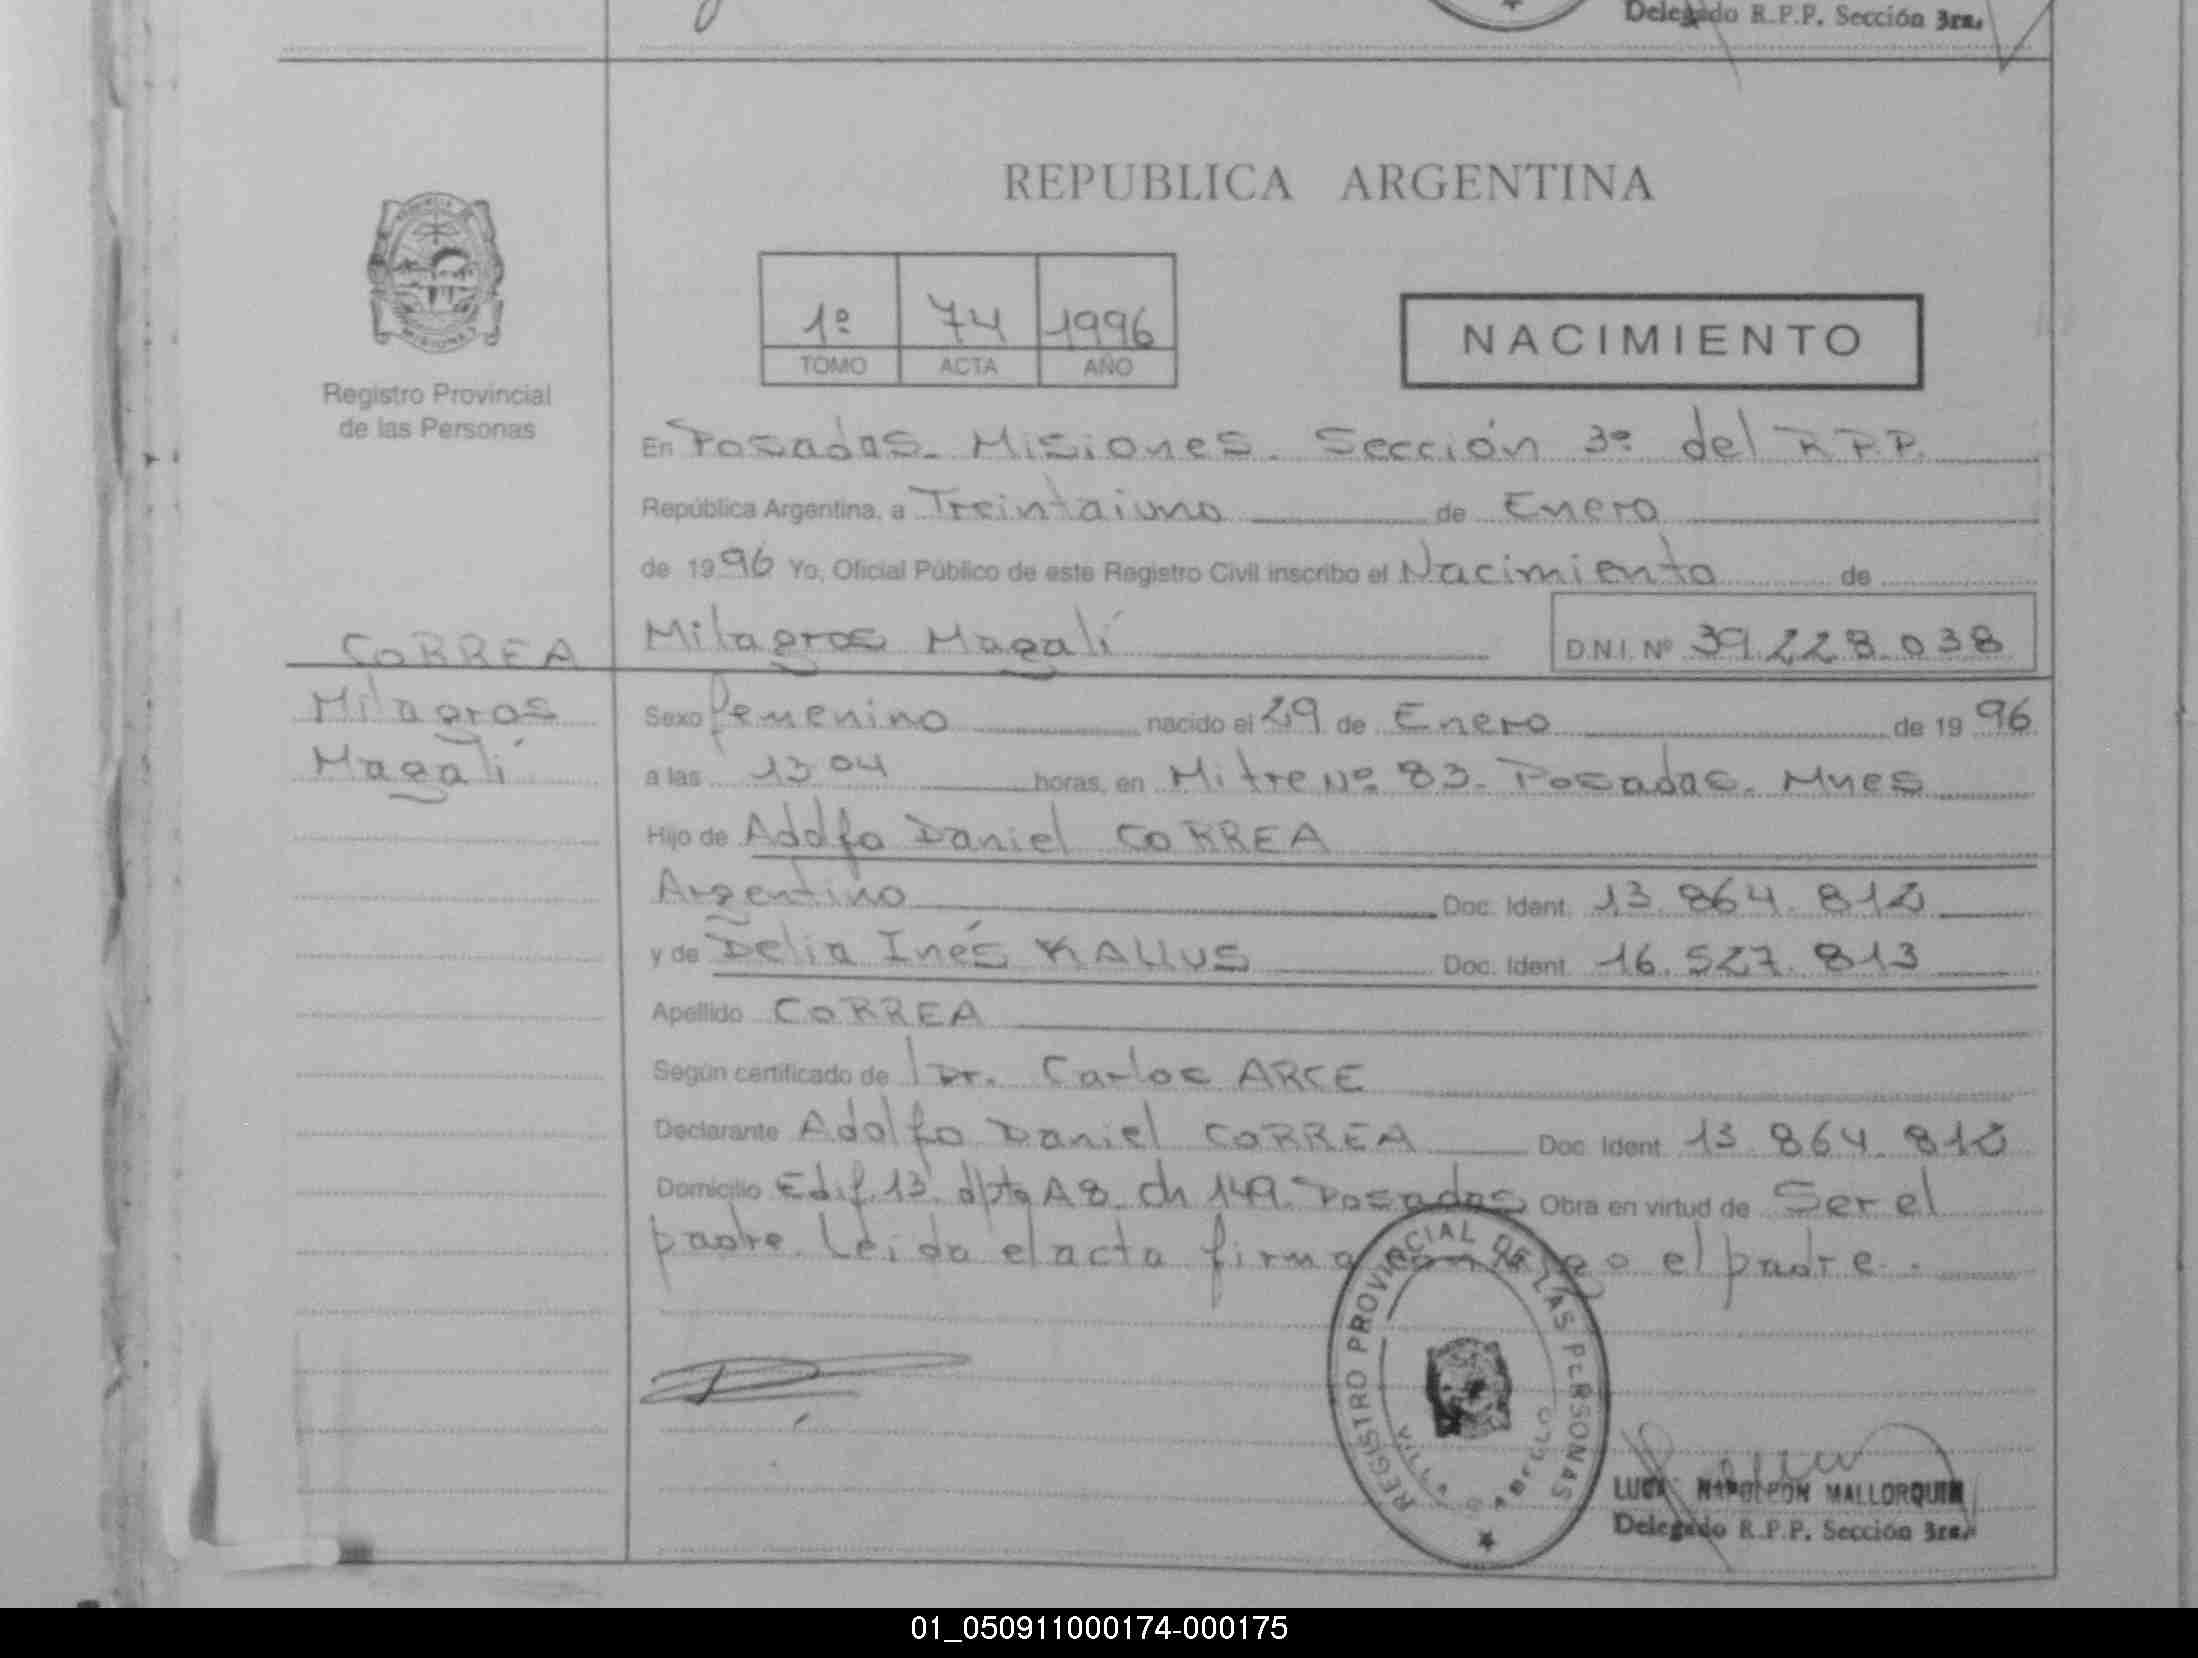 Delegado R.P.P. Sección 3ra.
REPUBLICA ARGENTINA
1º 74 1996
TOMO ACTA AÑO
NACIMIENTO
Registro Provincial
de las Personas
En Posadas. Misiones. Sección 3º del R.P.P.
República Argentina, a Treintaiuno de Enero
de 1996 Yo, Oficial Público de este Registro Civil inscribo el Nacimiento de
CORREA Milagros Magalí D.N.I. Nº 39.228.038
Milagros
Magalí
Sexo femenino nacido el 29 de Enero de 1996
a las 13 04 horas, en Mitre Nº 83. Posadas. Mnes
Hijo de Adolfo Daniel CORREA
Argentino Doc. Ident. 13.864.812
y de Delia Inés KALLUS Doc. Ident. 16.527.813
Apellido CORREA
Según certificado de Dr. Carlos ARCE
Declarante Adolfo Daniel CORREA Doc. Ident. 13.864.812
Domicilio Edif. 13 dpto A8 ch 149. Posadas Obra en virtud de Ser el
padre. Leida el acta firma conmigo el padre.
REGISTRO PROVINCIAL DE LAS PERSONAS
NAPOLEON MALLORQUIN
Delegado R.P.P. Sección 3ra.
01_050911000174-000175